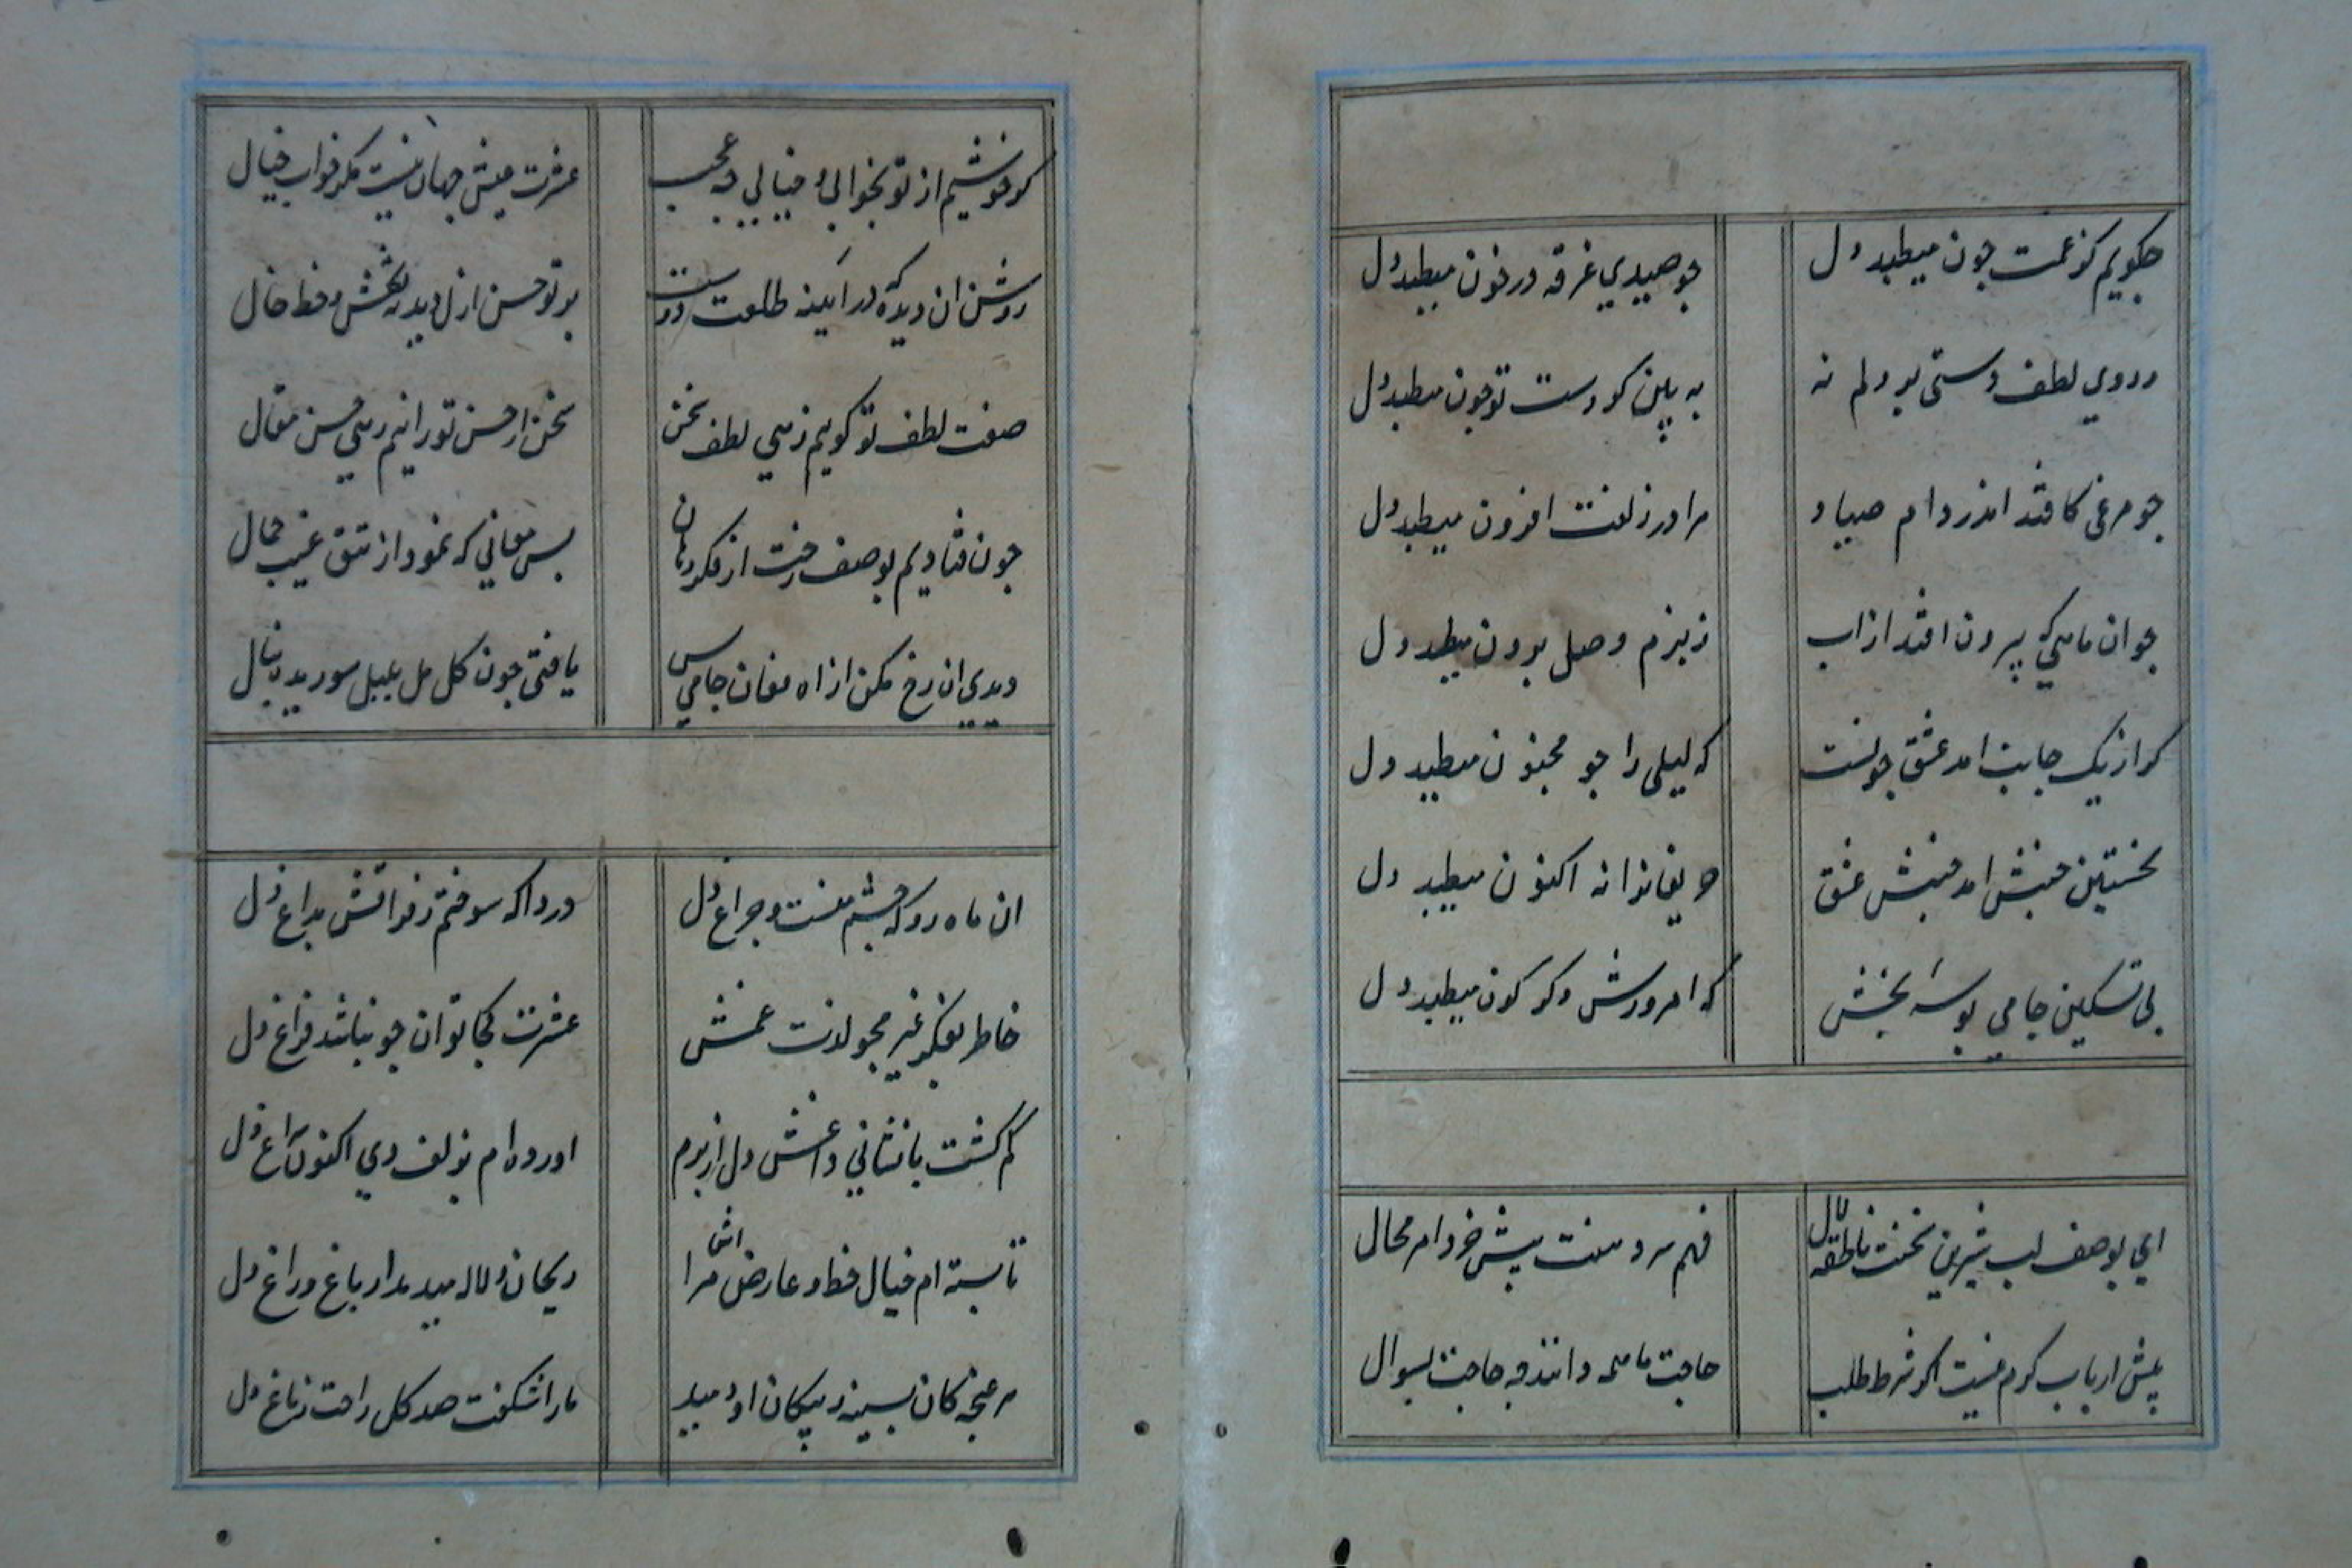 جکویم کز غمت جون میطبد دل جو صیدی غرقه در خون میطبد دل
ز روی لطف دستی بر دلم نه به بین کز دست تو جون میطبد دل
جو مرغی کافتد اندر دام صیاد مرا در زلفت افزون میطبد دل
جو ان ماهی که بیرون افتد از اب ز بزم وصل برون میطبد دل
کر از یک جانب امد عشق جونست که لیلی را جو مجنون میطبد دل
نخستین جنبش امد جنبش عشق حریفانرا نه اکنون میطبد دل
بی تسکین جامی بوسه بخش که امروزش دکر کون میطبد دل
ای بوصف لب شیرین سخنت ناطقه لال فهم سر دهنت پیش خرد امر محال
پیش ارباب کرم نیست اکر شرط طلب حاجت ما همه دانند چه حاجت بسوال
کر خوشیم از تو بخوابی و خیالی چه عجب عشرت عیش جهان نیست مکر خواب خیال
روشن ان دیده که در اینه طلعت دوست پرتو حسن ازل دید نه نقش و خط خال
صفت لطف تو کویم زهی لطف سخن سخن از حسن تو رانیم زهی حسن مقال
جون فتادیم بوصف رخت از فکر دهان بس معانی که نمود از تتق غیب جمال
دیدی ان رخ مکن از اه فغان جامی بس یافتی جون کل مل بلبل سوریده بنال
ان ماه رو که چشم منست و جراغ دل دردا که سوختم ز فراقش بداغ دل
خاطر بفکر غیر مجو لذت غمش عشرت کجا توان جو نباشد فراغ دل
کم کشت با نشانی داغش دل از برم اورده ام بزلف وی اکنون سراغ دل
تا بسته ام خیال خط و عارض اش مرا ریحان و لاله میدمد از باغ و راغ دل
هر غنجه کان بسینه ز پیکان او دمید ما را شکفت صد کل راحت ز باغ دل